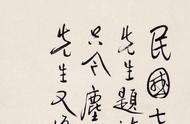 民國七
先生題
只今塵
先生又